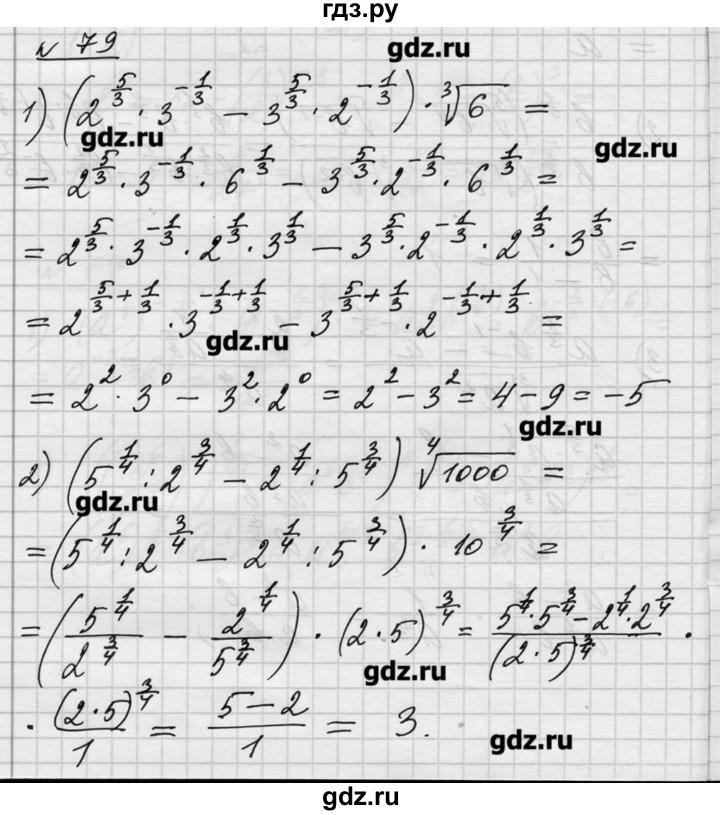 гдз.ру
№ 79
gdz.ru
1) (2^{5/3} · 3^{-1/3} − 3^{5/3} · 2^{-1/3}) · ∛6 =
gdz.ru
gdz.ru
= 2^{5/3} · 3^{-1/3} · 6^{1/3} − 3^{5/3} · 2^{-1/3} · 6^{1/3} =
= 2^{5/3} · 3^{-1/3} · 2^{1/3} · 3^{1/3} − 3^{5/3} · 2^{-1/3} · 2^{1/3} · 3^{1/3} =
= 2^{5/3+1/3} · 3^{-1/3+1/3} − 3^{5/3+1/3} · 2^{-1/3+1/3} =
gdz.ru
= 2^2 · 3^0 − 3^2 · 2^0 = 2^2 − 3^2 = 4 − 9 = −5
gdz.ru
2) (5^{1/4} : 2^{3/4} − 2^{1/4} : 5^{3/4}) ∜1000 =
gdz.ru
= (5^{1/4} : 2^{3/4} − 2^{1/4} : 5^{3/4}) · 10^{3/4} =
= (5^{1/4}/2^{3/4} − 2^{1/4}/5^{3/4}) · (2·5)^{3/4} = (5^{1/4} · 5^{3/4} − 2^{1/4} · 2^{3/4})/(2·5)^{3/4} ·
gdz.ru
· (2·5)^{3/4}/1 = (5 − 2)/1 = 3.
gdz.ru
gdz.ru